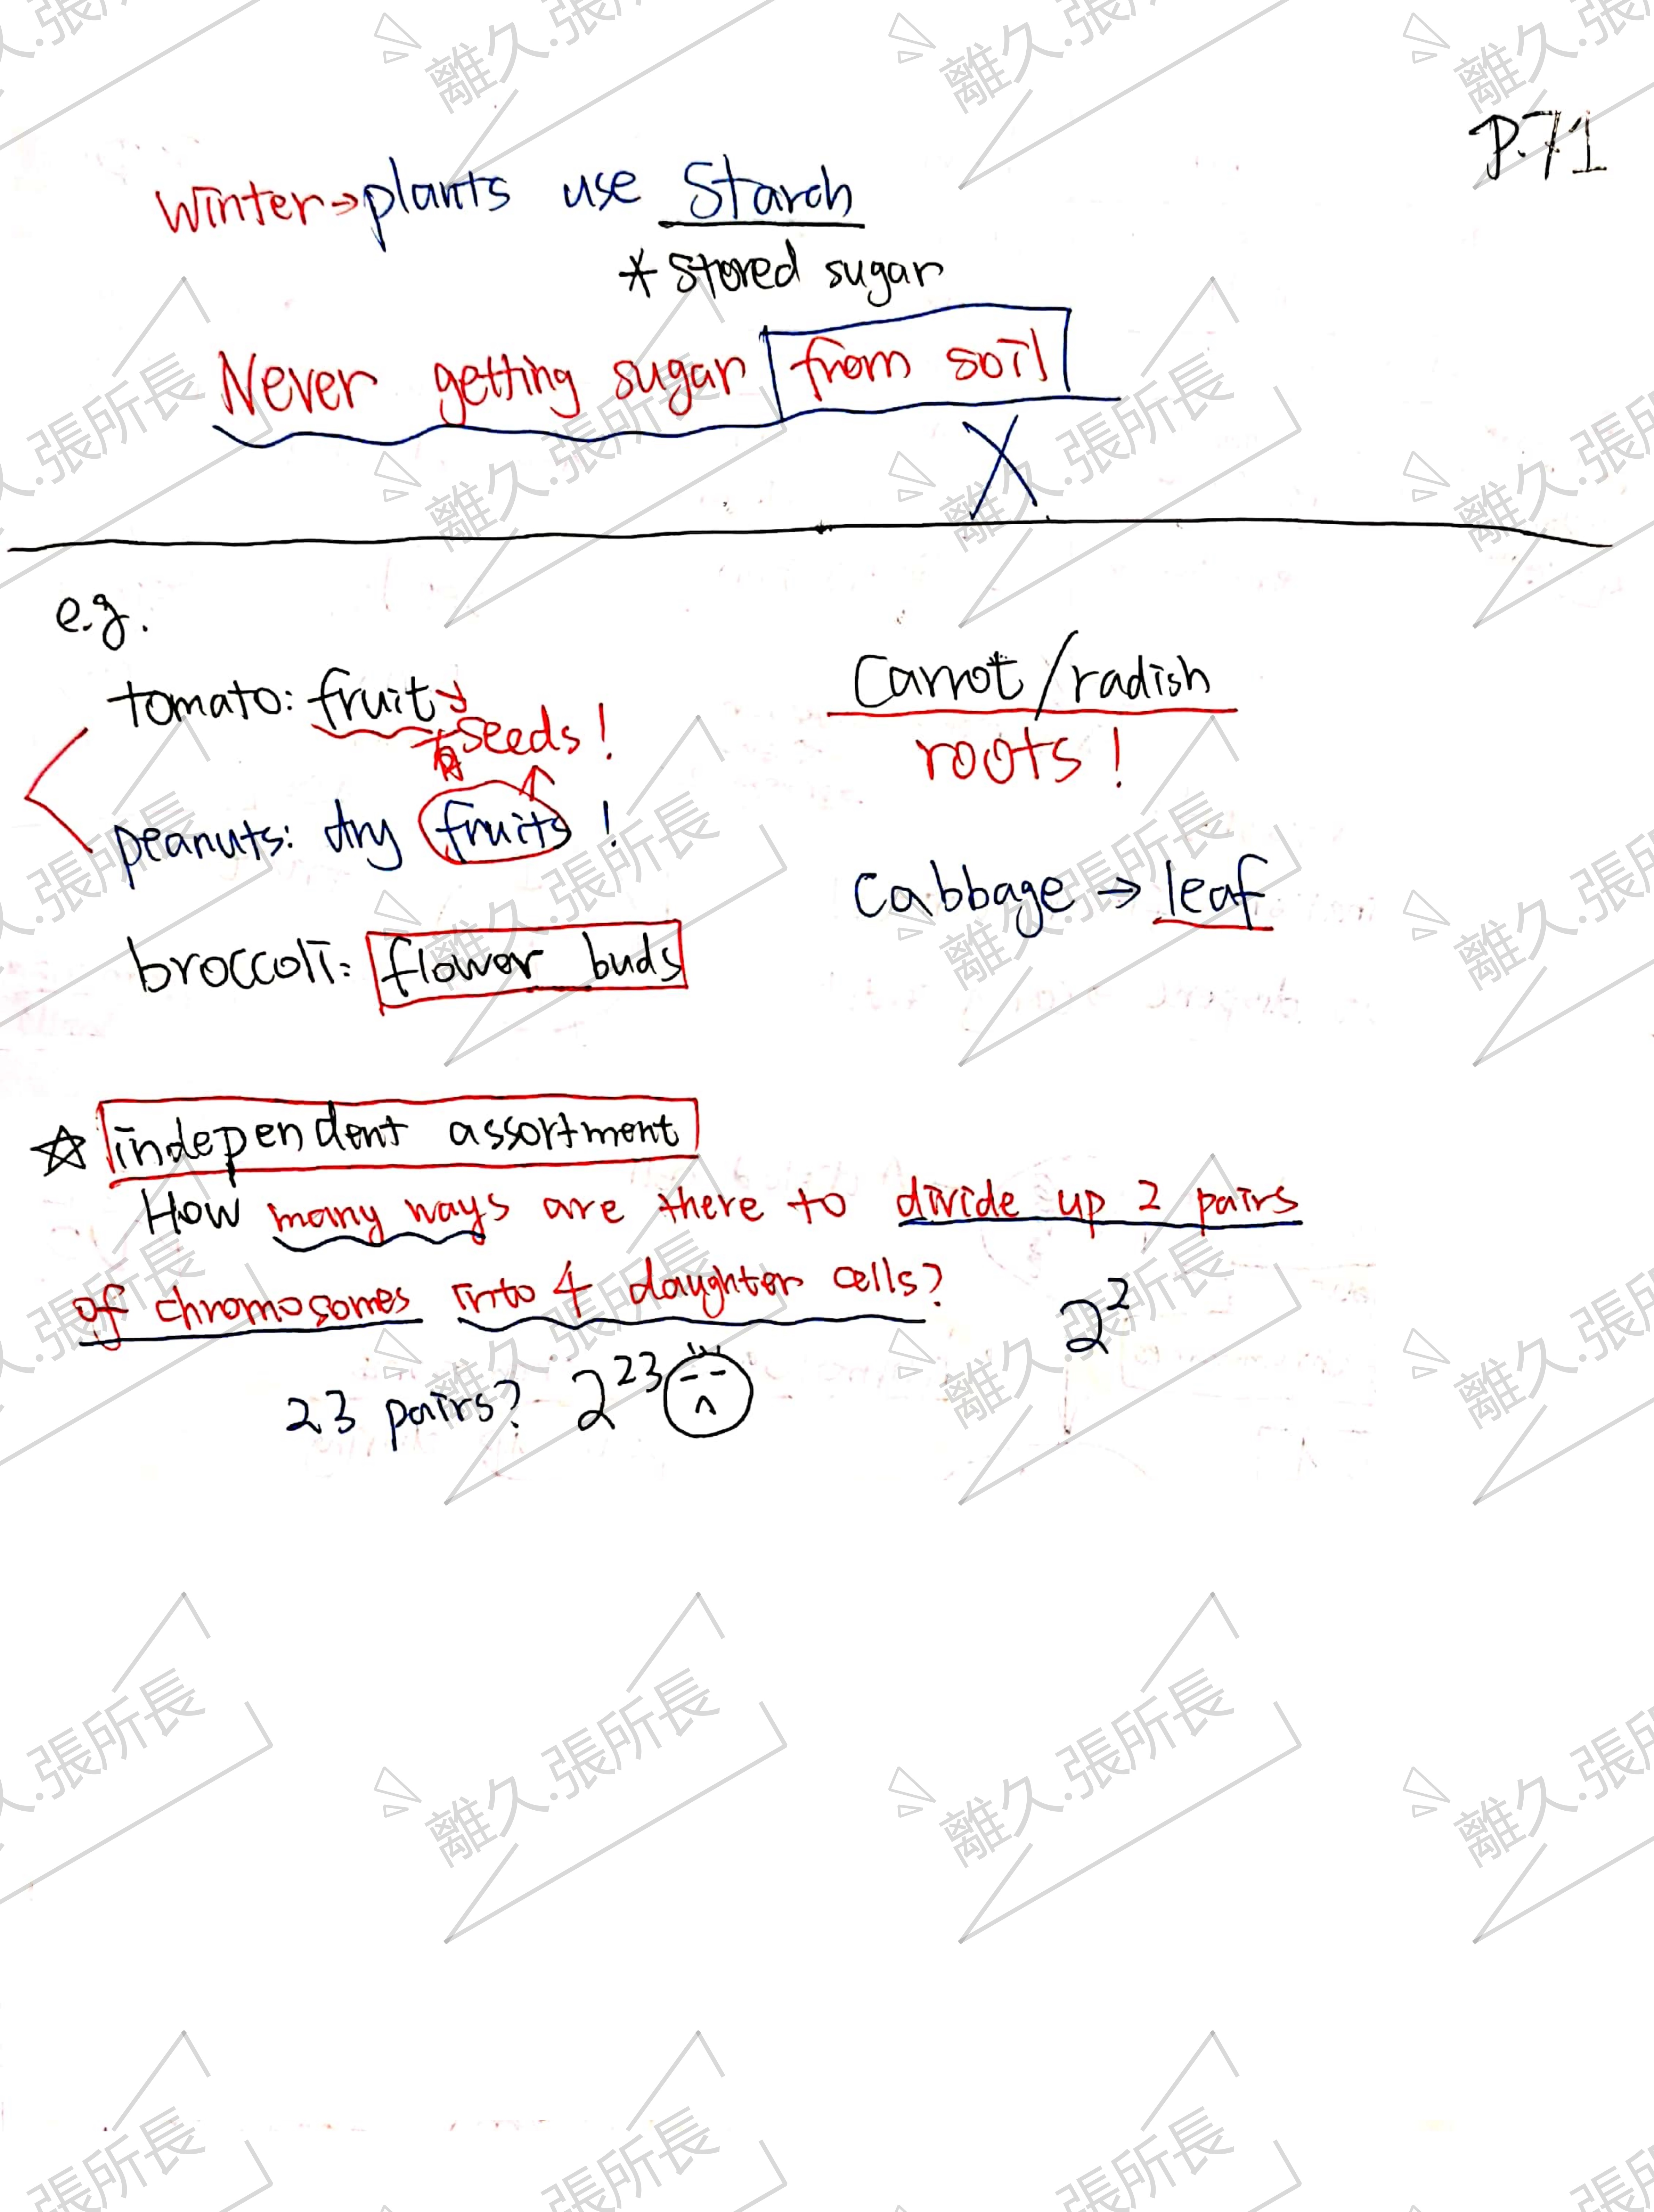 P.71
Winter→plants use Starch
* Stored sugar
Never getting sugar from soil
X
e.g.
tomato: fruit→
有seeds!
peanuts: dry fruits!
broccoli: flower buds
Carrot/radish
roots!
cabbage → leaf
☆ independent assortment
How many ways are there to divide up 2 pairs
of chromosomes into 4 daughter cells? 2²
23 pairs? 2²³
離久.張所長